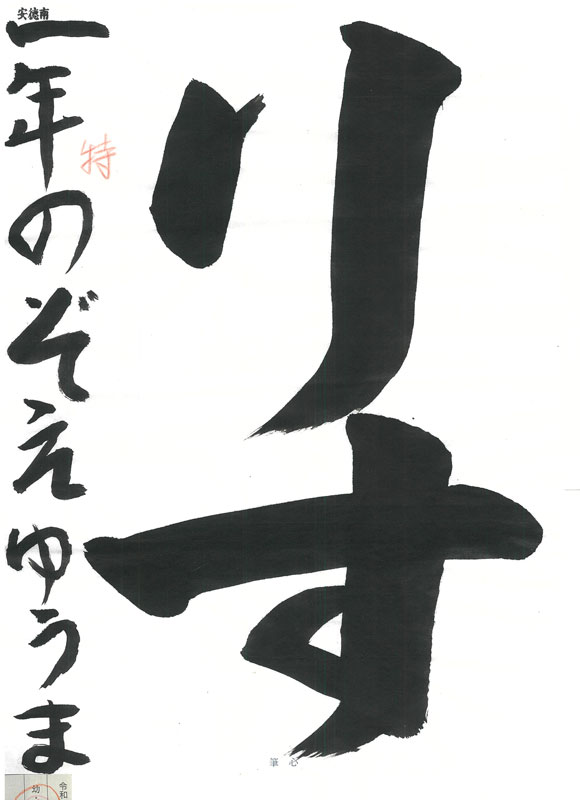 りす
安徳南
一年のぞえゆうま
特
筆心
令和
幼